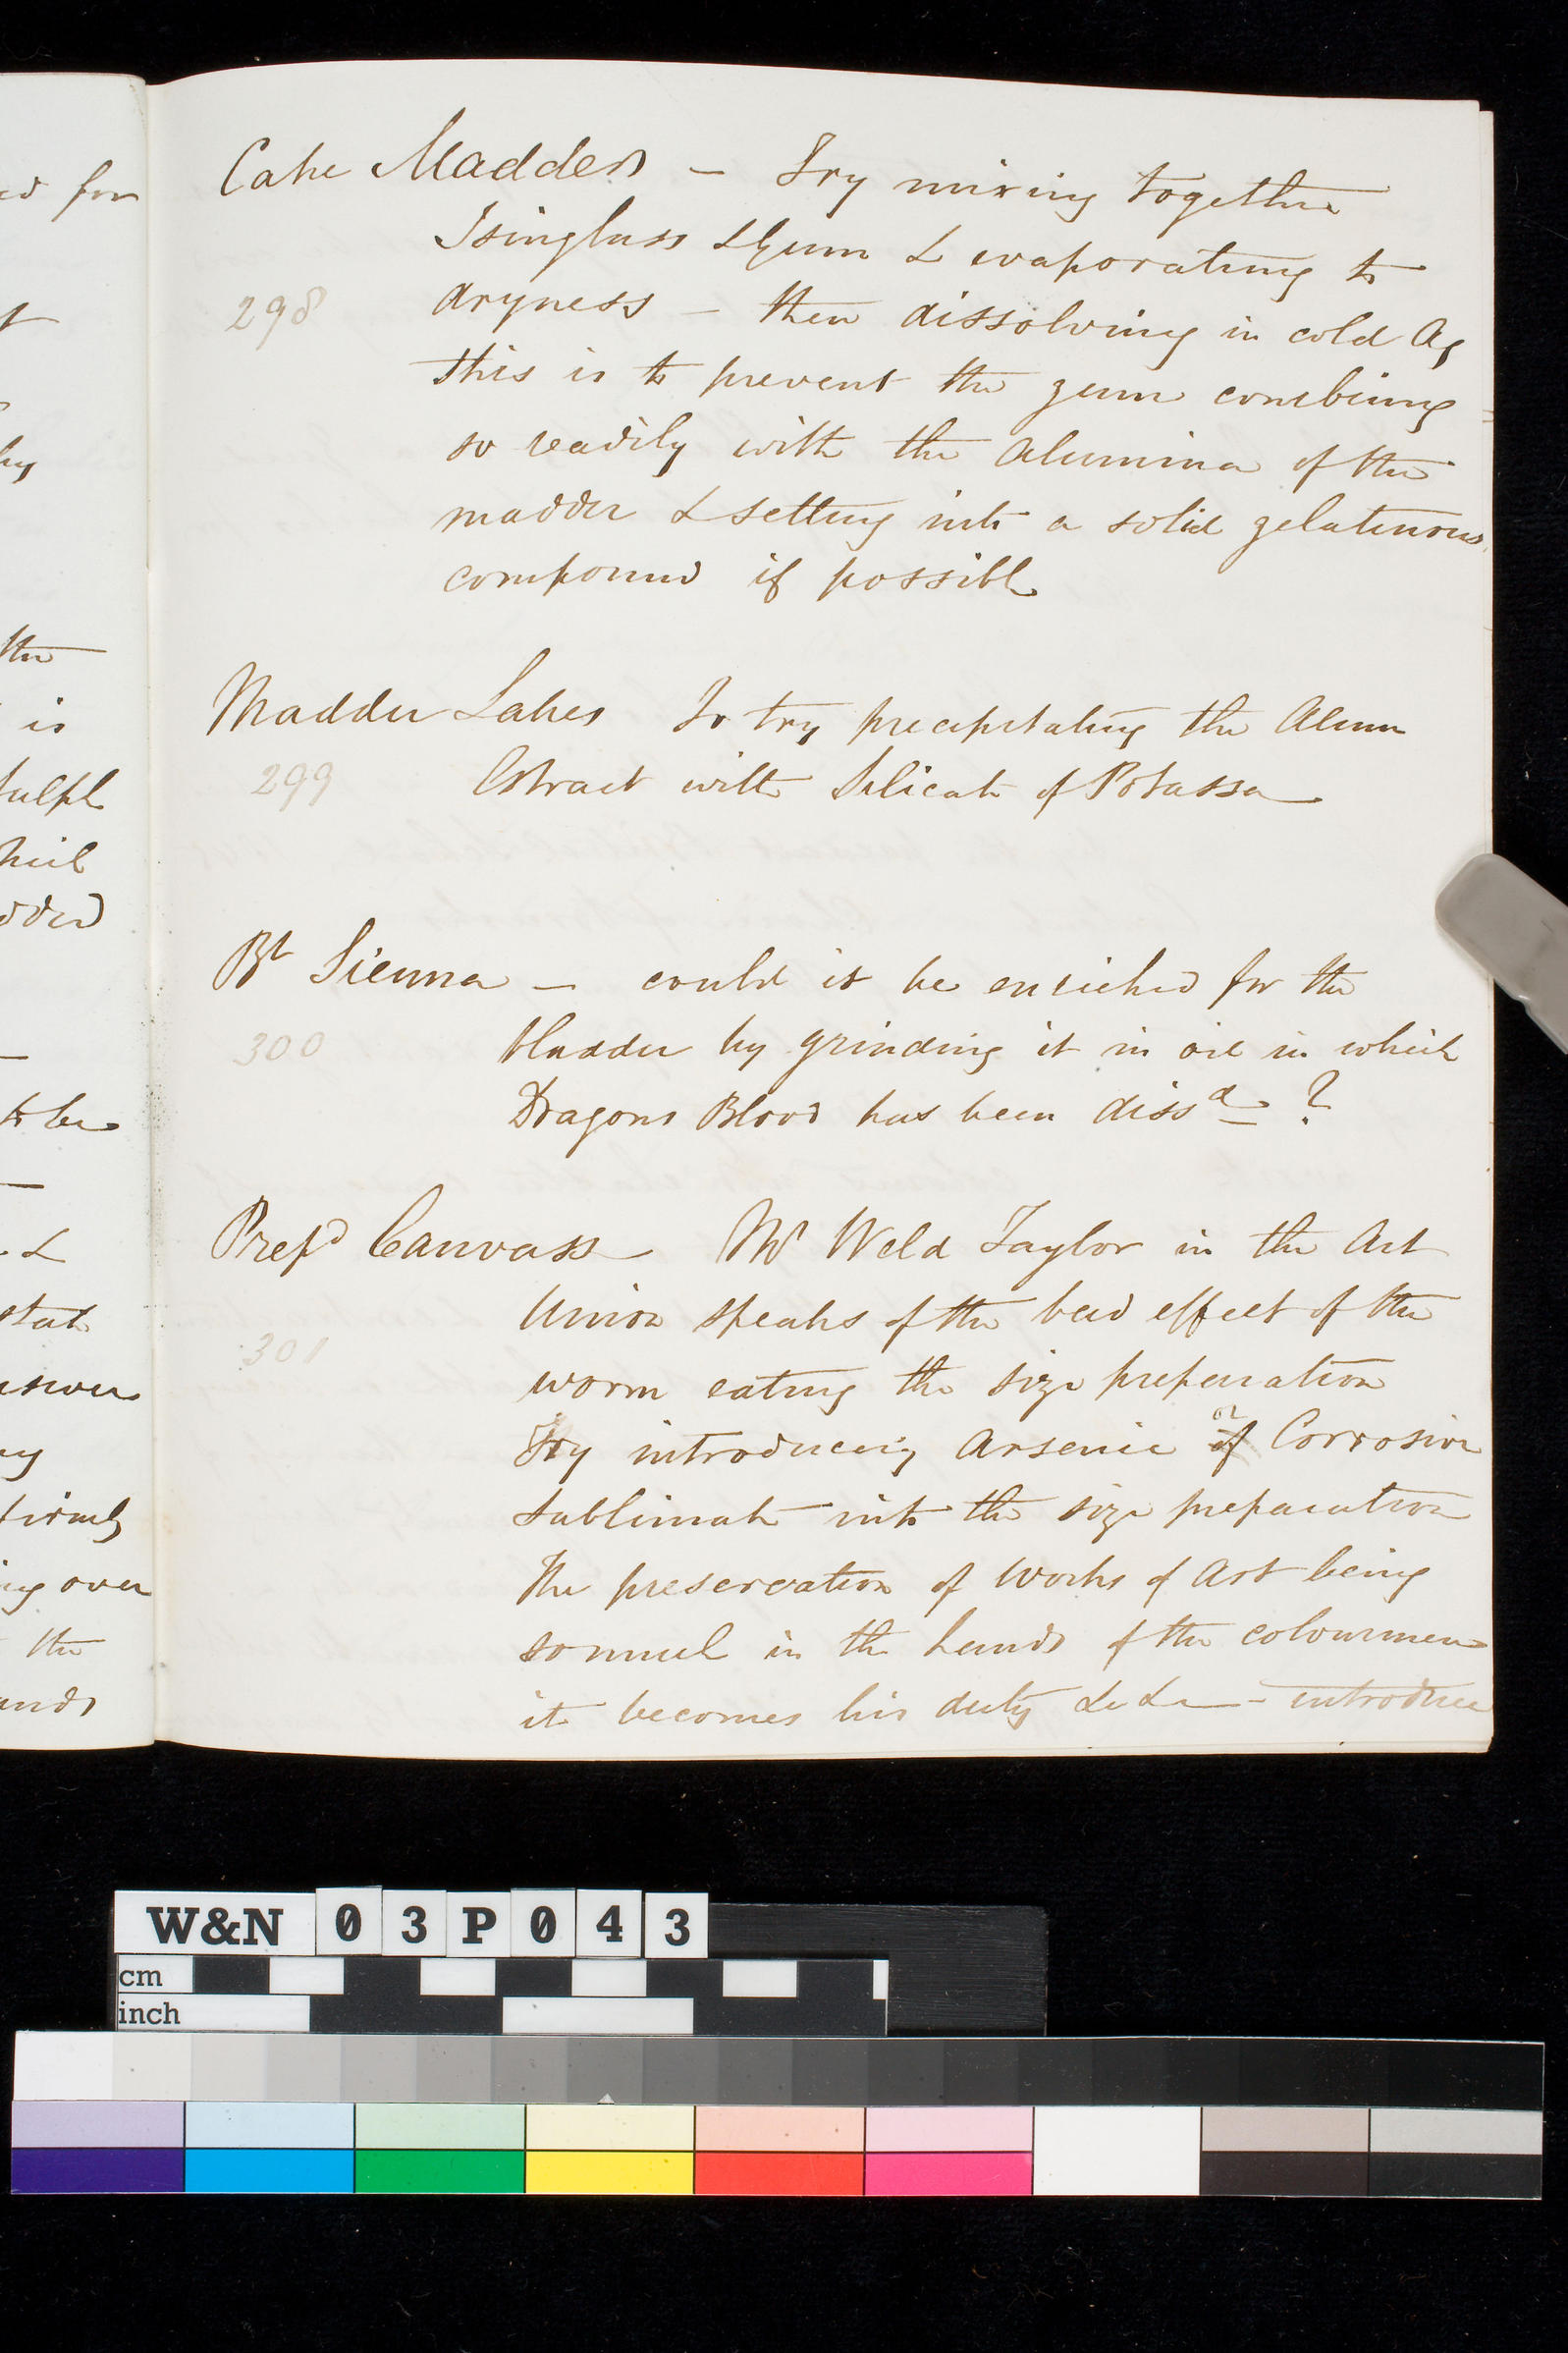 Cake Madders – Try mixing together
Isinglass & Gum & evaporating to
298
dryness – then dissolving in cold Aq
this is to prevent the gum combining
so readily with the Alumina of the
madder & setting into a solid gelatinous
compound if possible
Madder Lakes To try precipitating the Alum
299
Extract with Silicate of Potassa
Bt Sienna – could it be enriched for the
300
bladder by grinding it in oil in which
Dragons Blood has been dissd ?
Prepd Canvass Mr Weld Taylor in the Art
Union speaks of the bad effect of the
301
worm eating the size preparation
Try introducing Arsenic or Corrosive
Sublimate into the size preparation
The preservation of Works of Art being
so much in the hands of the colourmen
it becomes his duty &c &c – introduce
ed for
hy
the
is
Sulph
to be
&
ing over
the
W&N 03P043
cm
inch